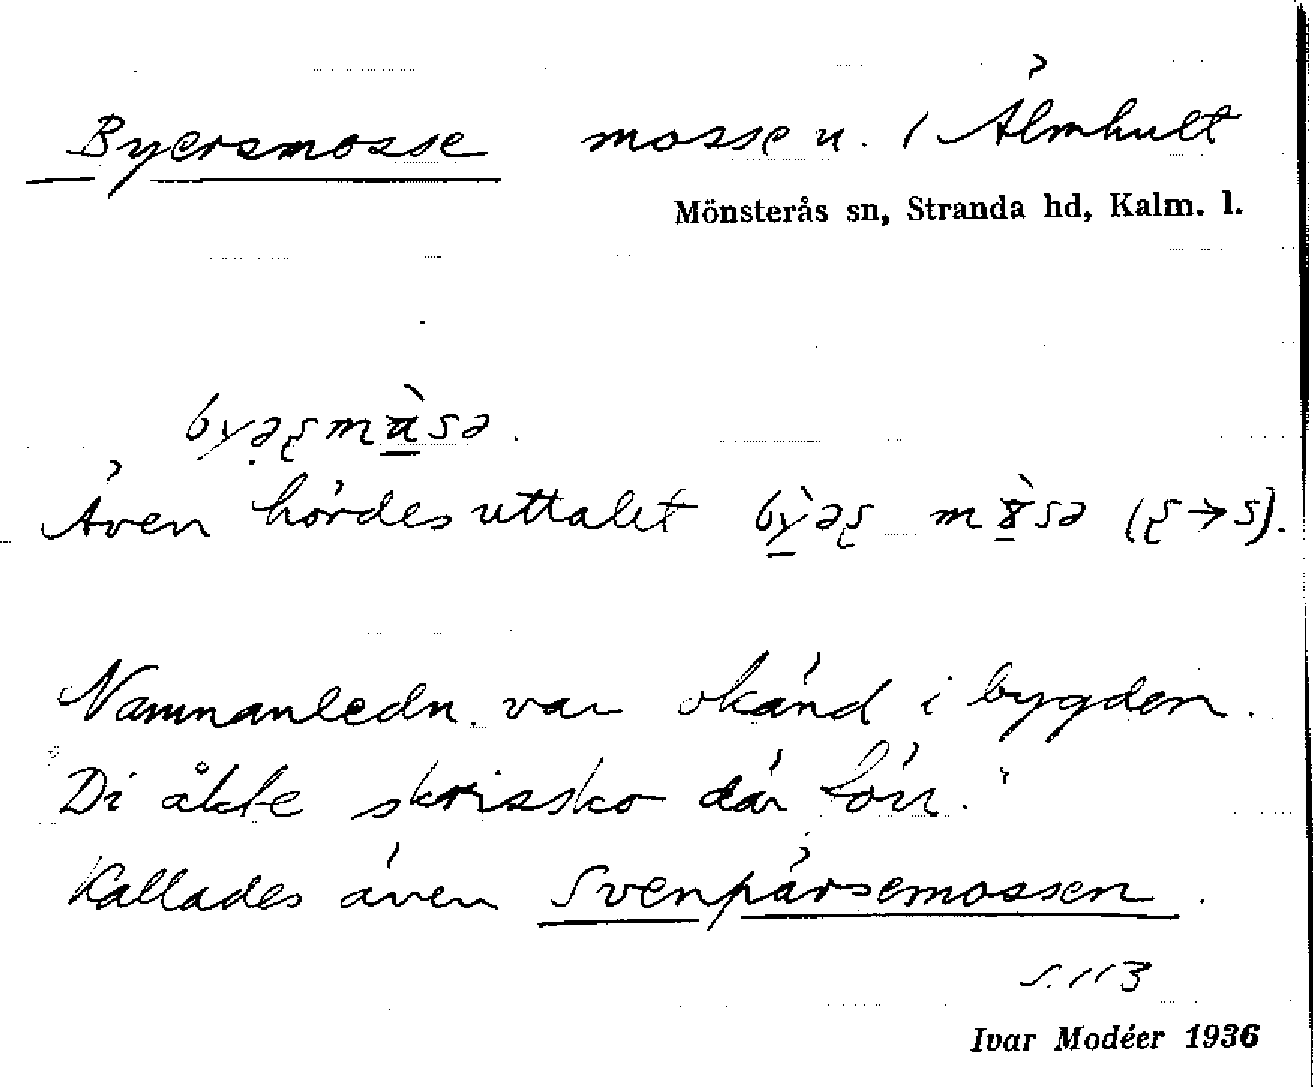 Byersmosse mosse u. / Älmhult
Mönsterås sn, Stranda hd, Kalm. l.
Även hördes uttalet
Namnanledn. var okänd i bygden.
"Di åkte skrissko där förr."
Kallades även Svenpärsemossen.
s. 113
Ivar Modéer 1936